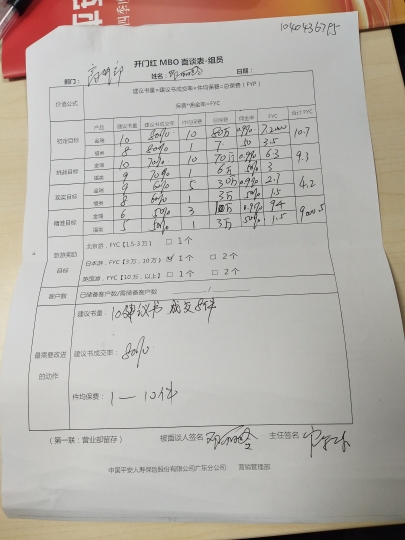 1040436795
开门红 MBO 面谈表-组员
部门： 姓名： 日期：
价值公式 建议书量*建议书成交率*件均保费=总保费（FYP）
保费*佣金率=FYC
产品 建议书量 建议书成交率 件均保费 总保费 佣金率 FYC 合计 FYC
10 80% 10 80万 0.9% 10.7
8 80% 1 7 50 3.5
挑战目标 10 70% 10 70万 0.9% 6.3
9 70% 1 6万 50% 3
9 60% 5 30万 0.9% 2.7 4.2
8 60% 1 3万 50% 1.5
6 50% 3
5 50% 1 3万 50% 1.5
旅游奖励 目标
北京游，FYC【1.5-3 万】 □ 1个
日本游，FYC【3 万，10 万） 1个 □ 2个
FYC【10 万，以上】 □ 1个 □ 2个
客户数 已储备客户数/需储备客户数 /
最需要改进的动作
建议书量： 10 建议书 成交8件
建议书成交率： 80%
件均保费： 1 — 10件
（第一联：营业部留存） 被面谈人签名 主任签名
中国平安人寿保险股份有限公司广东分公司 营销管理部